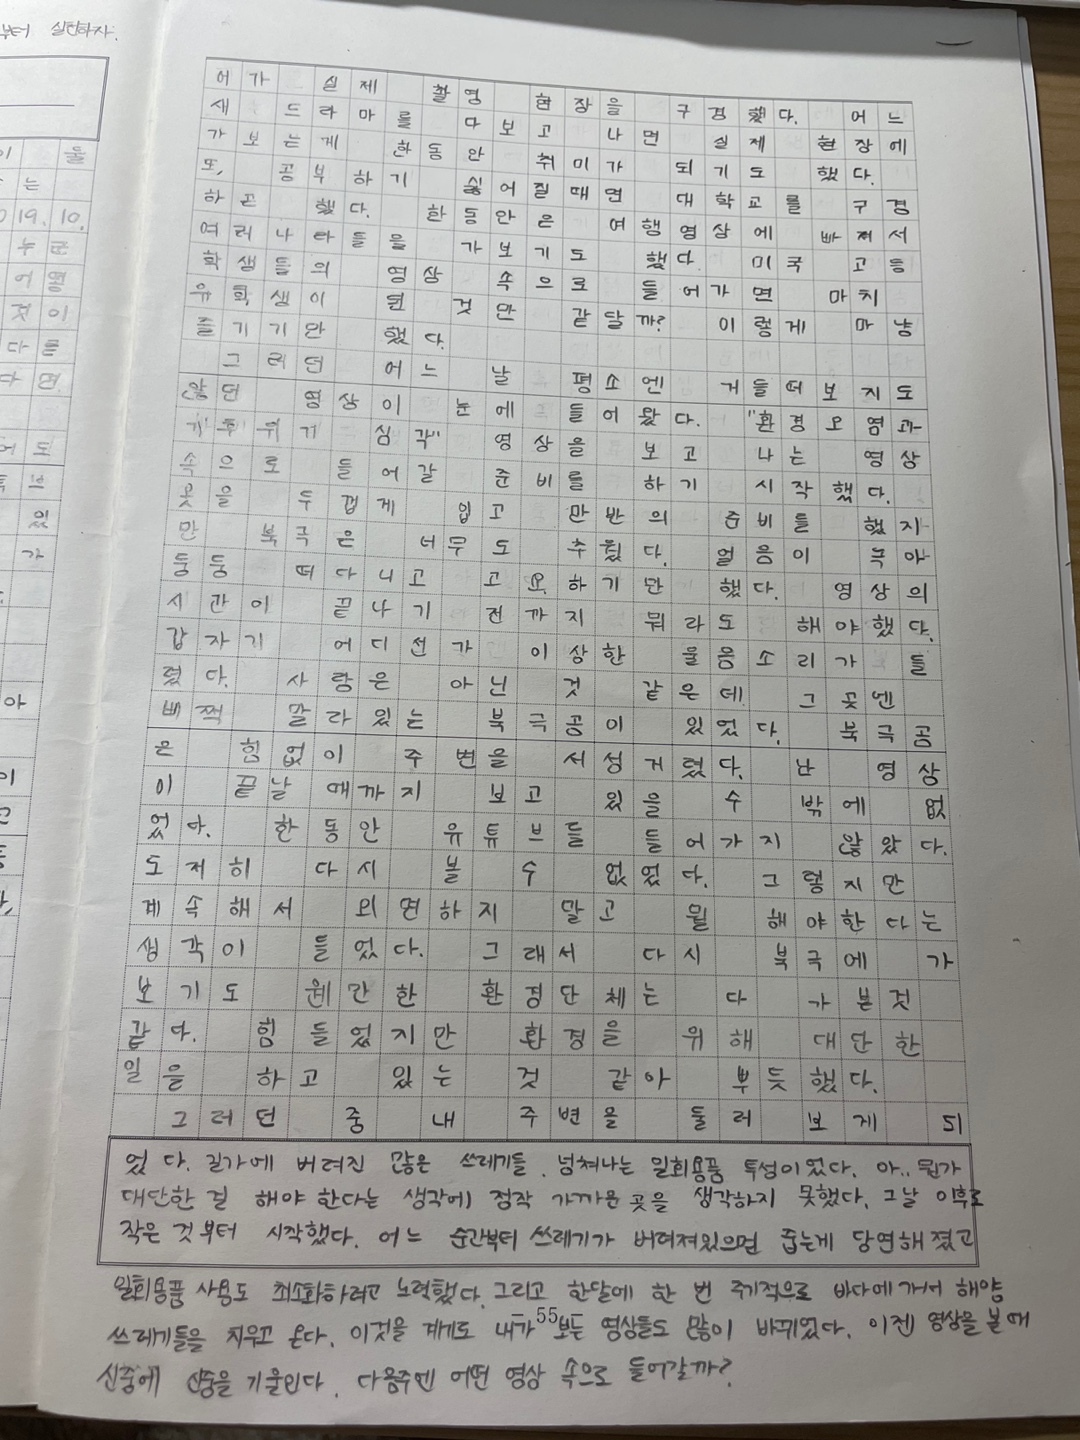 부터 실천하자.
어가 실제 촬영 현장을 구경했다. 어느
새 드라마를 다보고 나면 실제 현장에
가보는게 한동안 취미가 되기도 했다.
또, 공부하기 싫어질때면 대학교를 구경
하곤 했다. 한동안은 여행영상에 빠져서
여러나라들을 가보기도 했다. 미국 고등
학생들의 영상 속으로 들어가면 마치
유학생이 된 것만 같달까? 이렇게 마냥
즐기기만 했다.
그러던 어느 날 평소엔 거들떠보지도
않던 영상이 눈에 들어왔다. "환경오염과
기후위기 심각" 영상을 보고 나는 영상
속으로 들어갈 준비를 하기 시작했다.
옷을 두껍게 입고 만반의 준비를 했지
만 북극은 너무도 추웠다. 얼음이 녹아
둥둥 떠다니고 고요하기만 했다. 영상의
시간이 끝나기 전까지 뭐라도 해야했다.
갑자기 어디선가 이상한 울음소리가 들
렸다. 사람은 아닌 것 같은데 그곳엔
삐쩍 말라있는 북극곰이 있었다. 북극곰
은 힘없이 주변을 서성거렸다. 난 영상
이 끝날 때까지 보고 있을 수 밖에 없
었다. 한동안 유튜브를 들어가지 않았다.
도저히 다시 볼 수 없었다. 그렇지만
계속해서 외면하지 말고 뭘 해야한다는
생각이 들었다. 그래서 다시 북극에 가
보기도 웬간한 환경단체는 다 가본것
같다. 힘들었지만 환경을 위해 대단한
일을 하고 있는 것 같아 뿌듯했다.
그러던 중 내 주변을 둘러보게 되
었다. 길가에 버려진 많은 쓰레기들. 넘쳐나는 일회용품 투성이었다. 아.. 뭔가
대단한 걸 해야 한다는 생각에 정작 가까운 곳을 생각하지 못했다. 그날 이후로
작은 것부터 시작했다. 어느 순간부터 쓰레기가 버려져있으면 줍는게 당연해졌고
일회용품 사용도 최소화하려고 노력했다. 그리고 한달에 한 번 주기적으로 바다에가서 해양
쓰레기들을 치우고 온다. 이것을 계기로 내가 보는 영상들도 많이 바뀌었다. 이젠 영상을 볼때
신중에 신중을 기울인다. 다음주엔 어떤 영상 속으로 들어갈까?
- 55 -